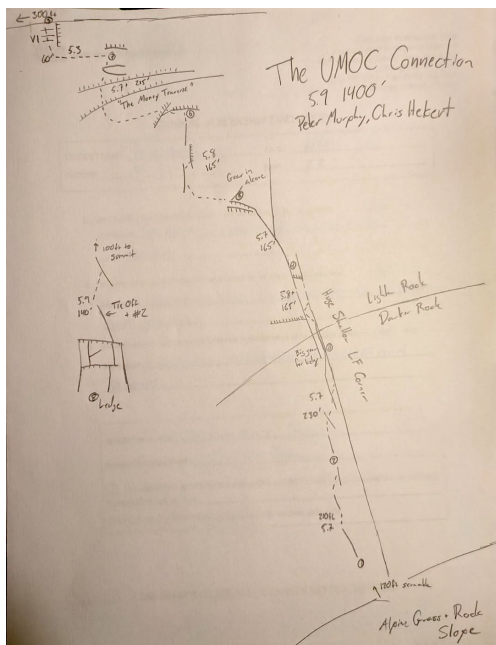 ← 300ft
V1
60'
5.3
5.7+ 215'
"The Money Traverse"
The UMOC Connection
5.9 1400'
Peter Murphy, Chris Hekert
5.8
165'
Gear in
alcove
5.7
165'
↑ 100ft to
summit
5.9
140'
← Tie Off
+ #2
Ledge
5.8+
165'
Huge Shallow LF Corner
Lighter Rock
Darker Rock
Big gear
for belay
5.7
230'
210ft
5.7
120ft scramble
Alpine Grass + Rock
Slope